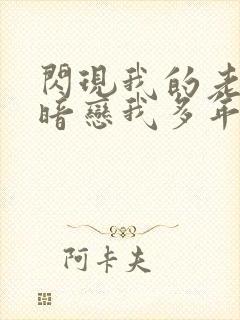 閃現我的老
暗戀我多年
阿卡夫